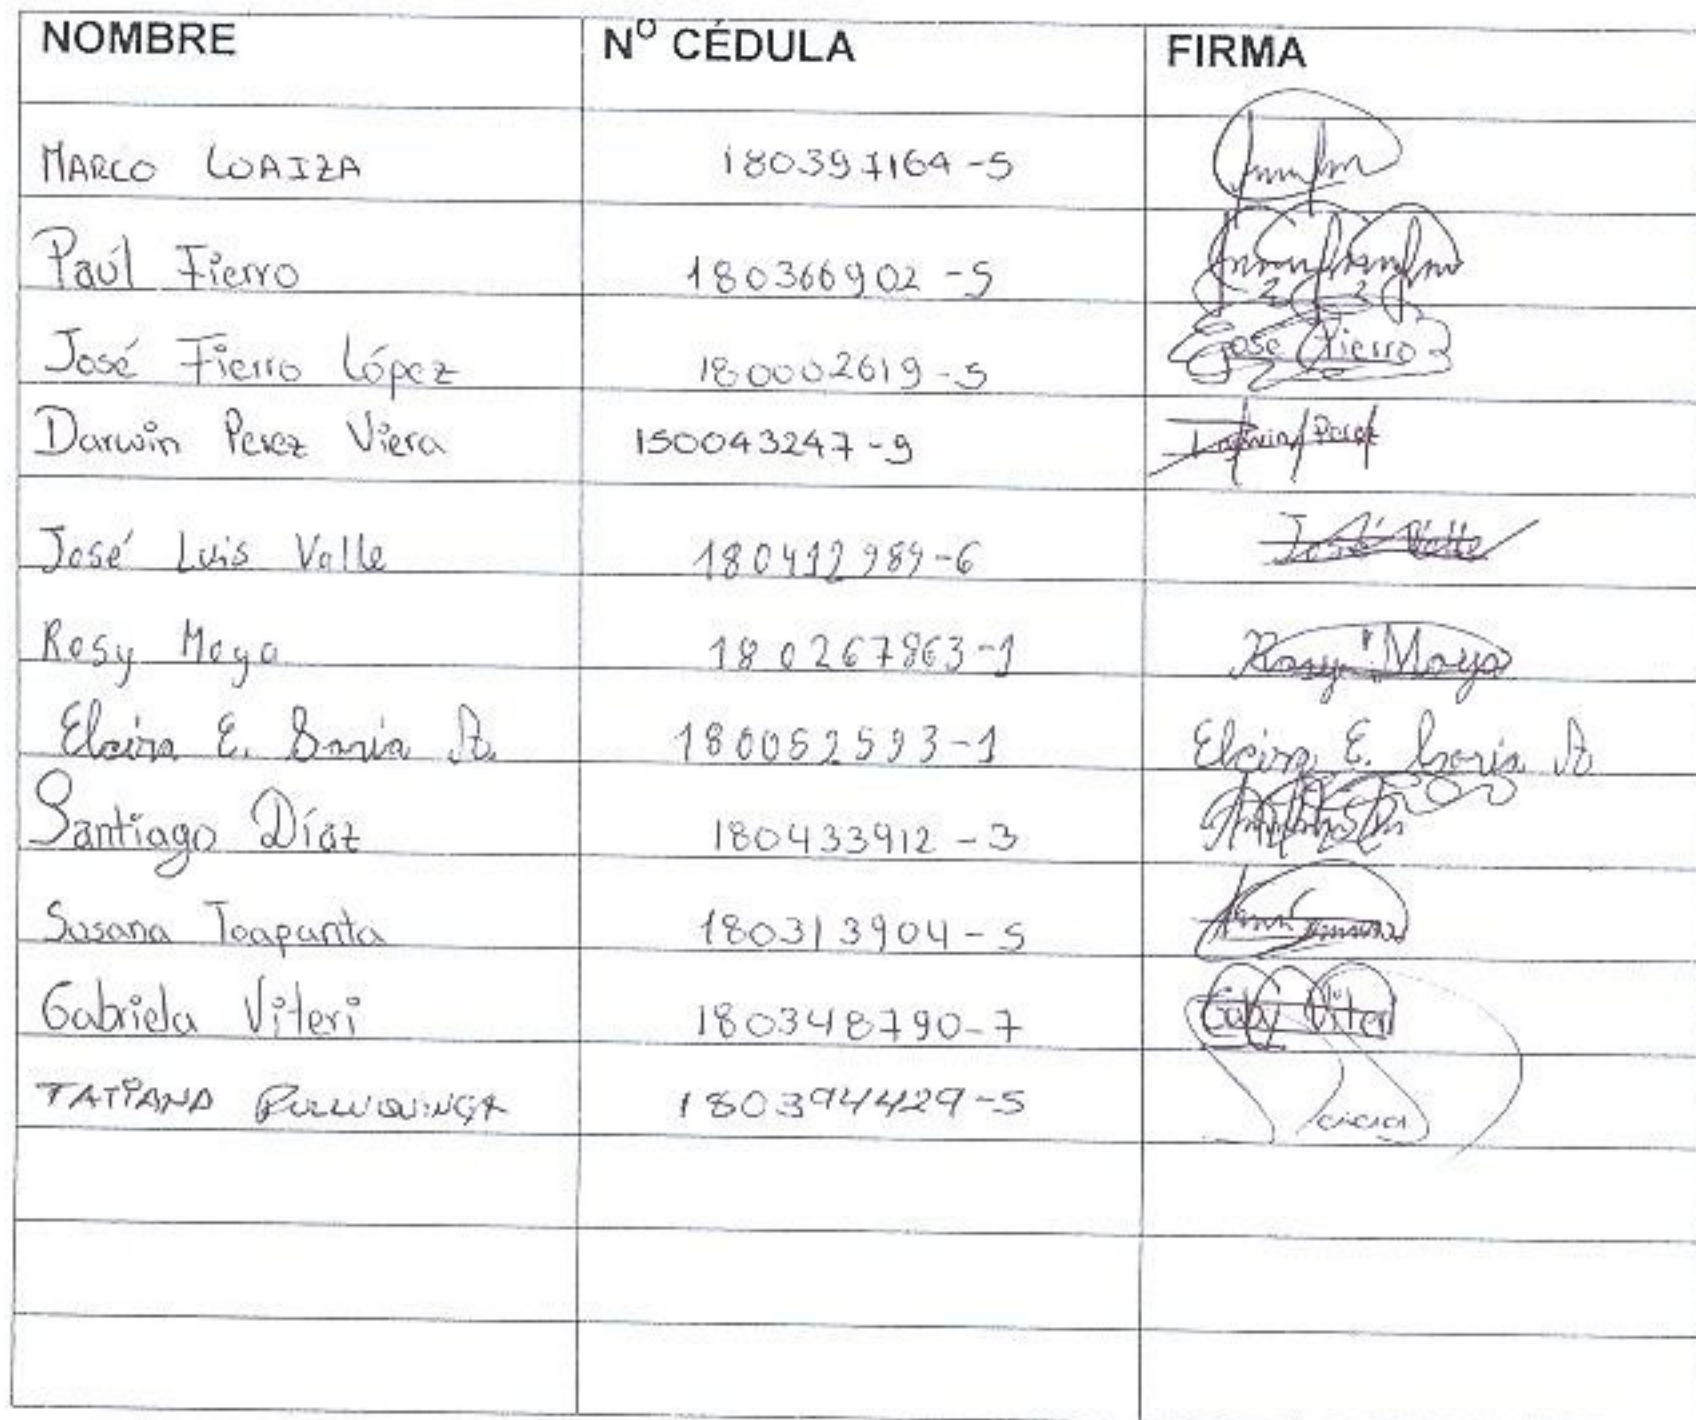 NOMBRE Nº CÉDULA FIRMA
MARCO LOAIZA 180397164-5
Paúl Fierro 180366902-5
José Fierro López 180002619-5 José Fierro
Darwin Perez Viera 150043247-9 Darwin Perez
José Luis Valle 180412989-6 José Valle
Rosy Moya 180267863-1 Rosy Moya
E. 180052593-1 E.
Santiago Díaz 180433912-3
Susana Toapanta 180313904-5
Gabriela Viteri 180348790-7 Gaby Viteri
TATIANA 180394429-5